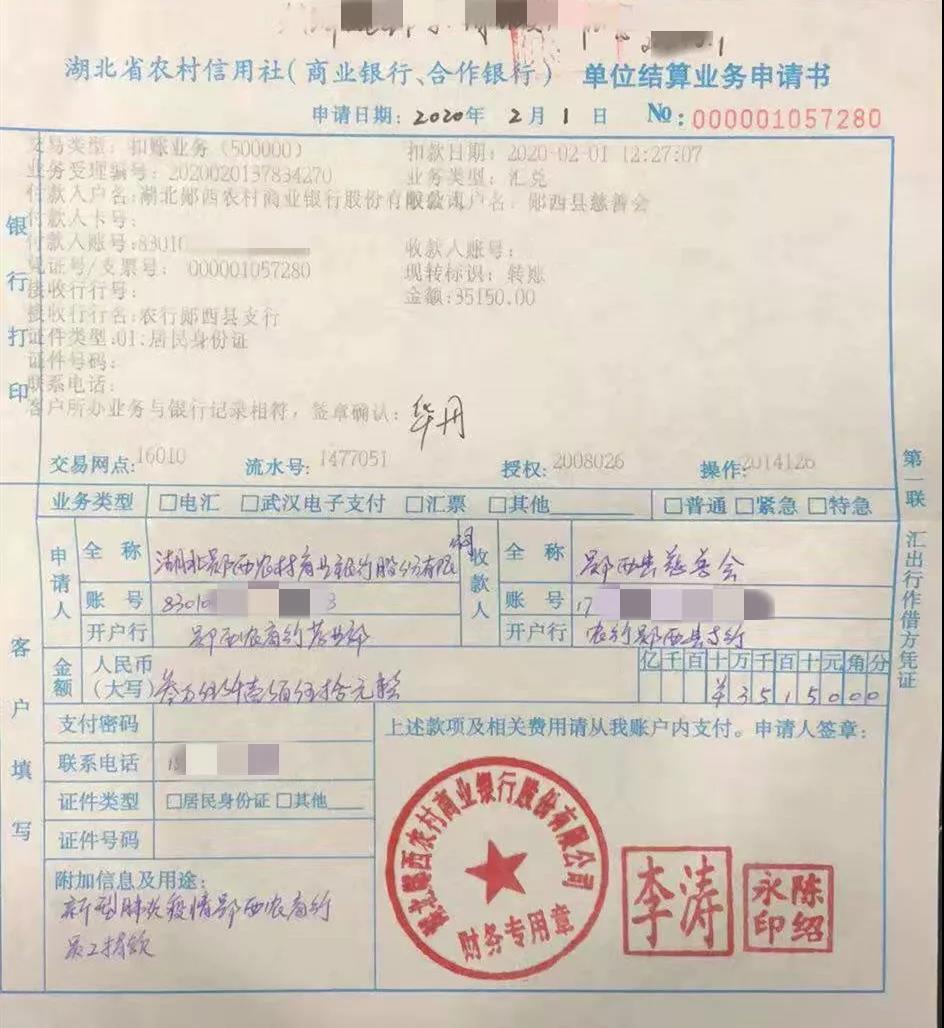 湖北省农村信用社（商业银行、合作银行） 单位结算业务申请书
申请日期：2020年 2月 1 日 №：000001057280
交易类型：扣账业务（500000） 扣款日期：2020-02-01 12:27:07
业务受理编号：2020020137834270 业务类型：汇兑
付款人户名：湖北郧西农村商业银行股份有限 户名：郧西县慈善会
付款人卡号：
付款人账号：83010 收款人账号：
凭证号/支票号：000001057280 现转标识：转账
接收行行号： 金额：35150.00
接收行行名：农行郧西县支行
证件类型：01：居民身份证
证件号码：
联系电话：
客户所办业务与银行记录相符，签章确认：华丹
银行打印
交易网点：16010 流水号：1477051 授权：2008026 操作：2014126
业务类型 □电汇 □武汉电子支付 □汇票 □其他 □普通 □紧急 □特急
第一联 汇出行作借方凭证
客户填写
申请人 全称 湖北郧西农村商业银行股份有限公司 收款人 全称 郧西县慈善会
账号 83010 3 账号 17
开户行 郧西农商行营业部 开户行 农行郧西县支行
金额 人民币（大写） 叁万伍仟壹佰伍拾元整 亿千百十万千百十元角分
¥3515000
支付密码
联系电话 1
证件类型 □居民身份证 □其他
证件号码
附加信息及用途：
新型肺炎疫情郧西农商行
员工捐款
上述款项及相关费用请从我账户内支付。申请人签章：
湖北郧西农村商业银行股份有限公司
财务专用章
李涛
陈绍永印